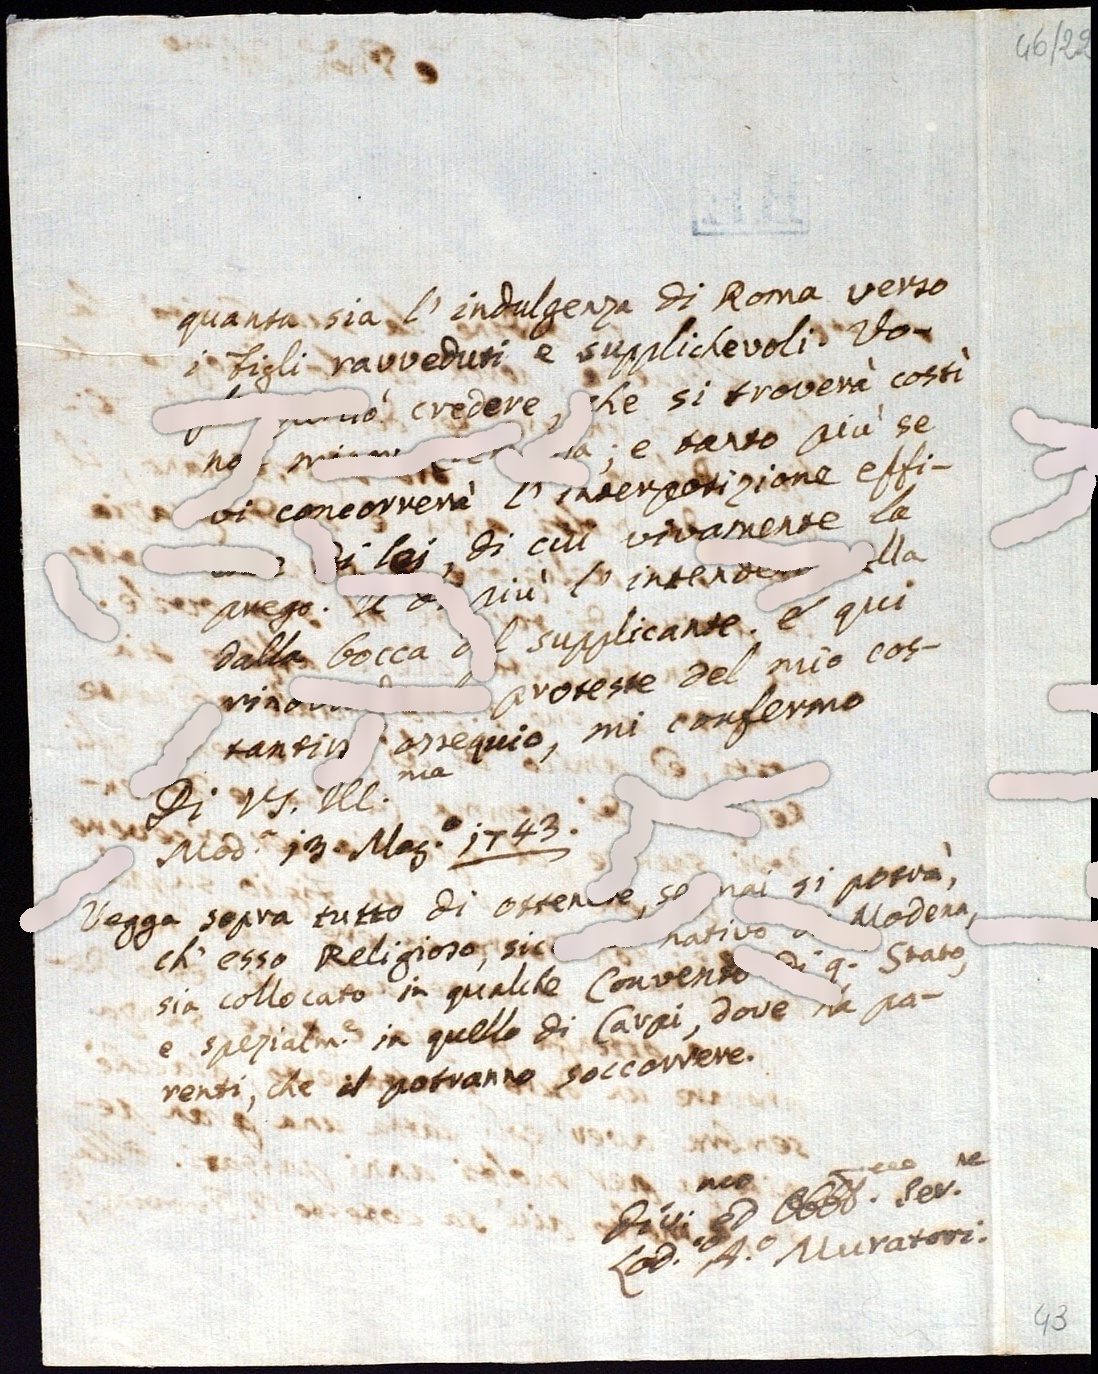 46/22
quanta sia l' indulgenza di Roma verso
i figli ravveduti e supplichevoli. Vo-
credere, che si troverà costì
e tanto più se
vi concorrerà l' interposizione effi-
di lei, di cui vivamente la
prego. Il di più l'
dalla bocca del supplicante. E qui
proteste del mio cos-
ossequio, mi confermo
Di VS. Ill.ma
Mod.a 13. Mag.o 1743.
Vegga sopra tutto di ottenere, se mai si potrà,
ch' esso Religioso, nativo di Modena,
sia collocato in qualche Convento di q. Stato,
e spezialm.e in quello di Carpi, dove ha pa-
renti, che il potranno soccorrere.
Div.mo ed Obbl. Ser.re
Lod.co A.o Muratori.
43